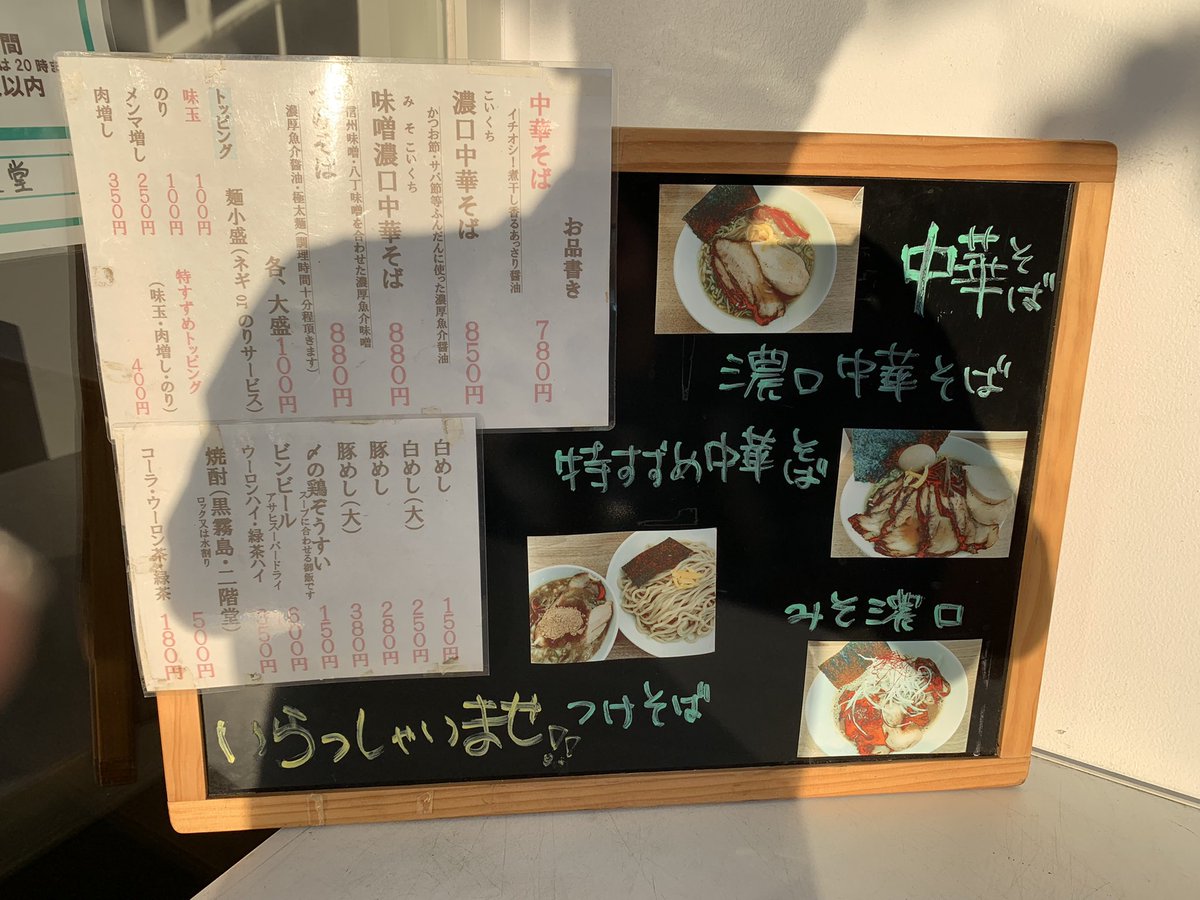 間
は20時ま
以内
堂
お品書き
中華そば 780円
イチオシ！煮干し香るあっさり醤油
こいくち
濃口中華そば 850円
かつお節・サバ節等ふんだんに使った濃厚魚介醤油
みそこいくち
味噌濃口中華そば 880円
信州味噌・八丁味噌を合わせた濃厚魚介味噌
つけそば 880円
濃厚魚介醤油・極太麺(調理時間十分程頂きます)
各、大盛100円
麺小盛(ネギ or のりサービス)
トッピング
味玉 100円
のり 100円
メンマ増し 250円
肉増し 350円
特すずめトッピング
(味玉・肉増し・のり)
400円
白めし 150円
白めし(大) 250円
豚めし 280円
豚めし(大) 380円
〆の鶏ぞうすい 150円
スープに合わせる御飯です
ビンビール 600円
アサヒスーパードライ
ウーロンハイ・緑茶ハイ 350円
焼酎(黒霧島・二階堂) 500円
ロック又は水割り
コーラ・ウーロン茶・緑茶 180円
中華そば
濃口中華そば
特すずめ中華そば
みそ濃口
つけそば
いらっしゃいませ!!